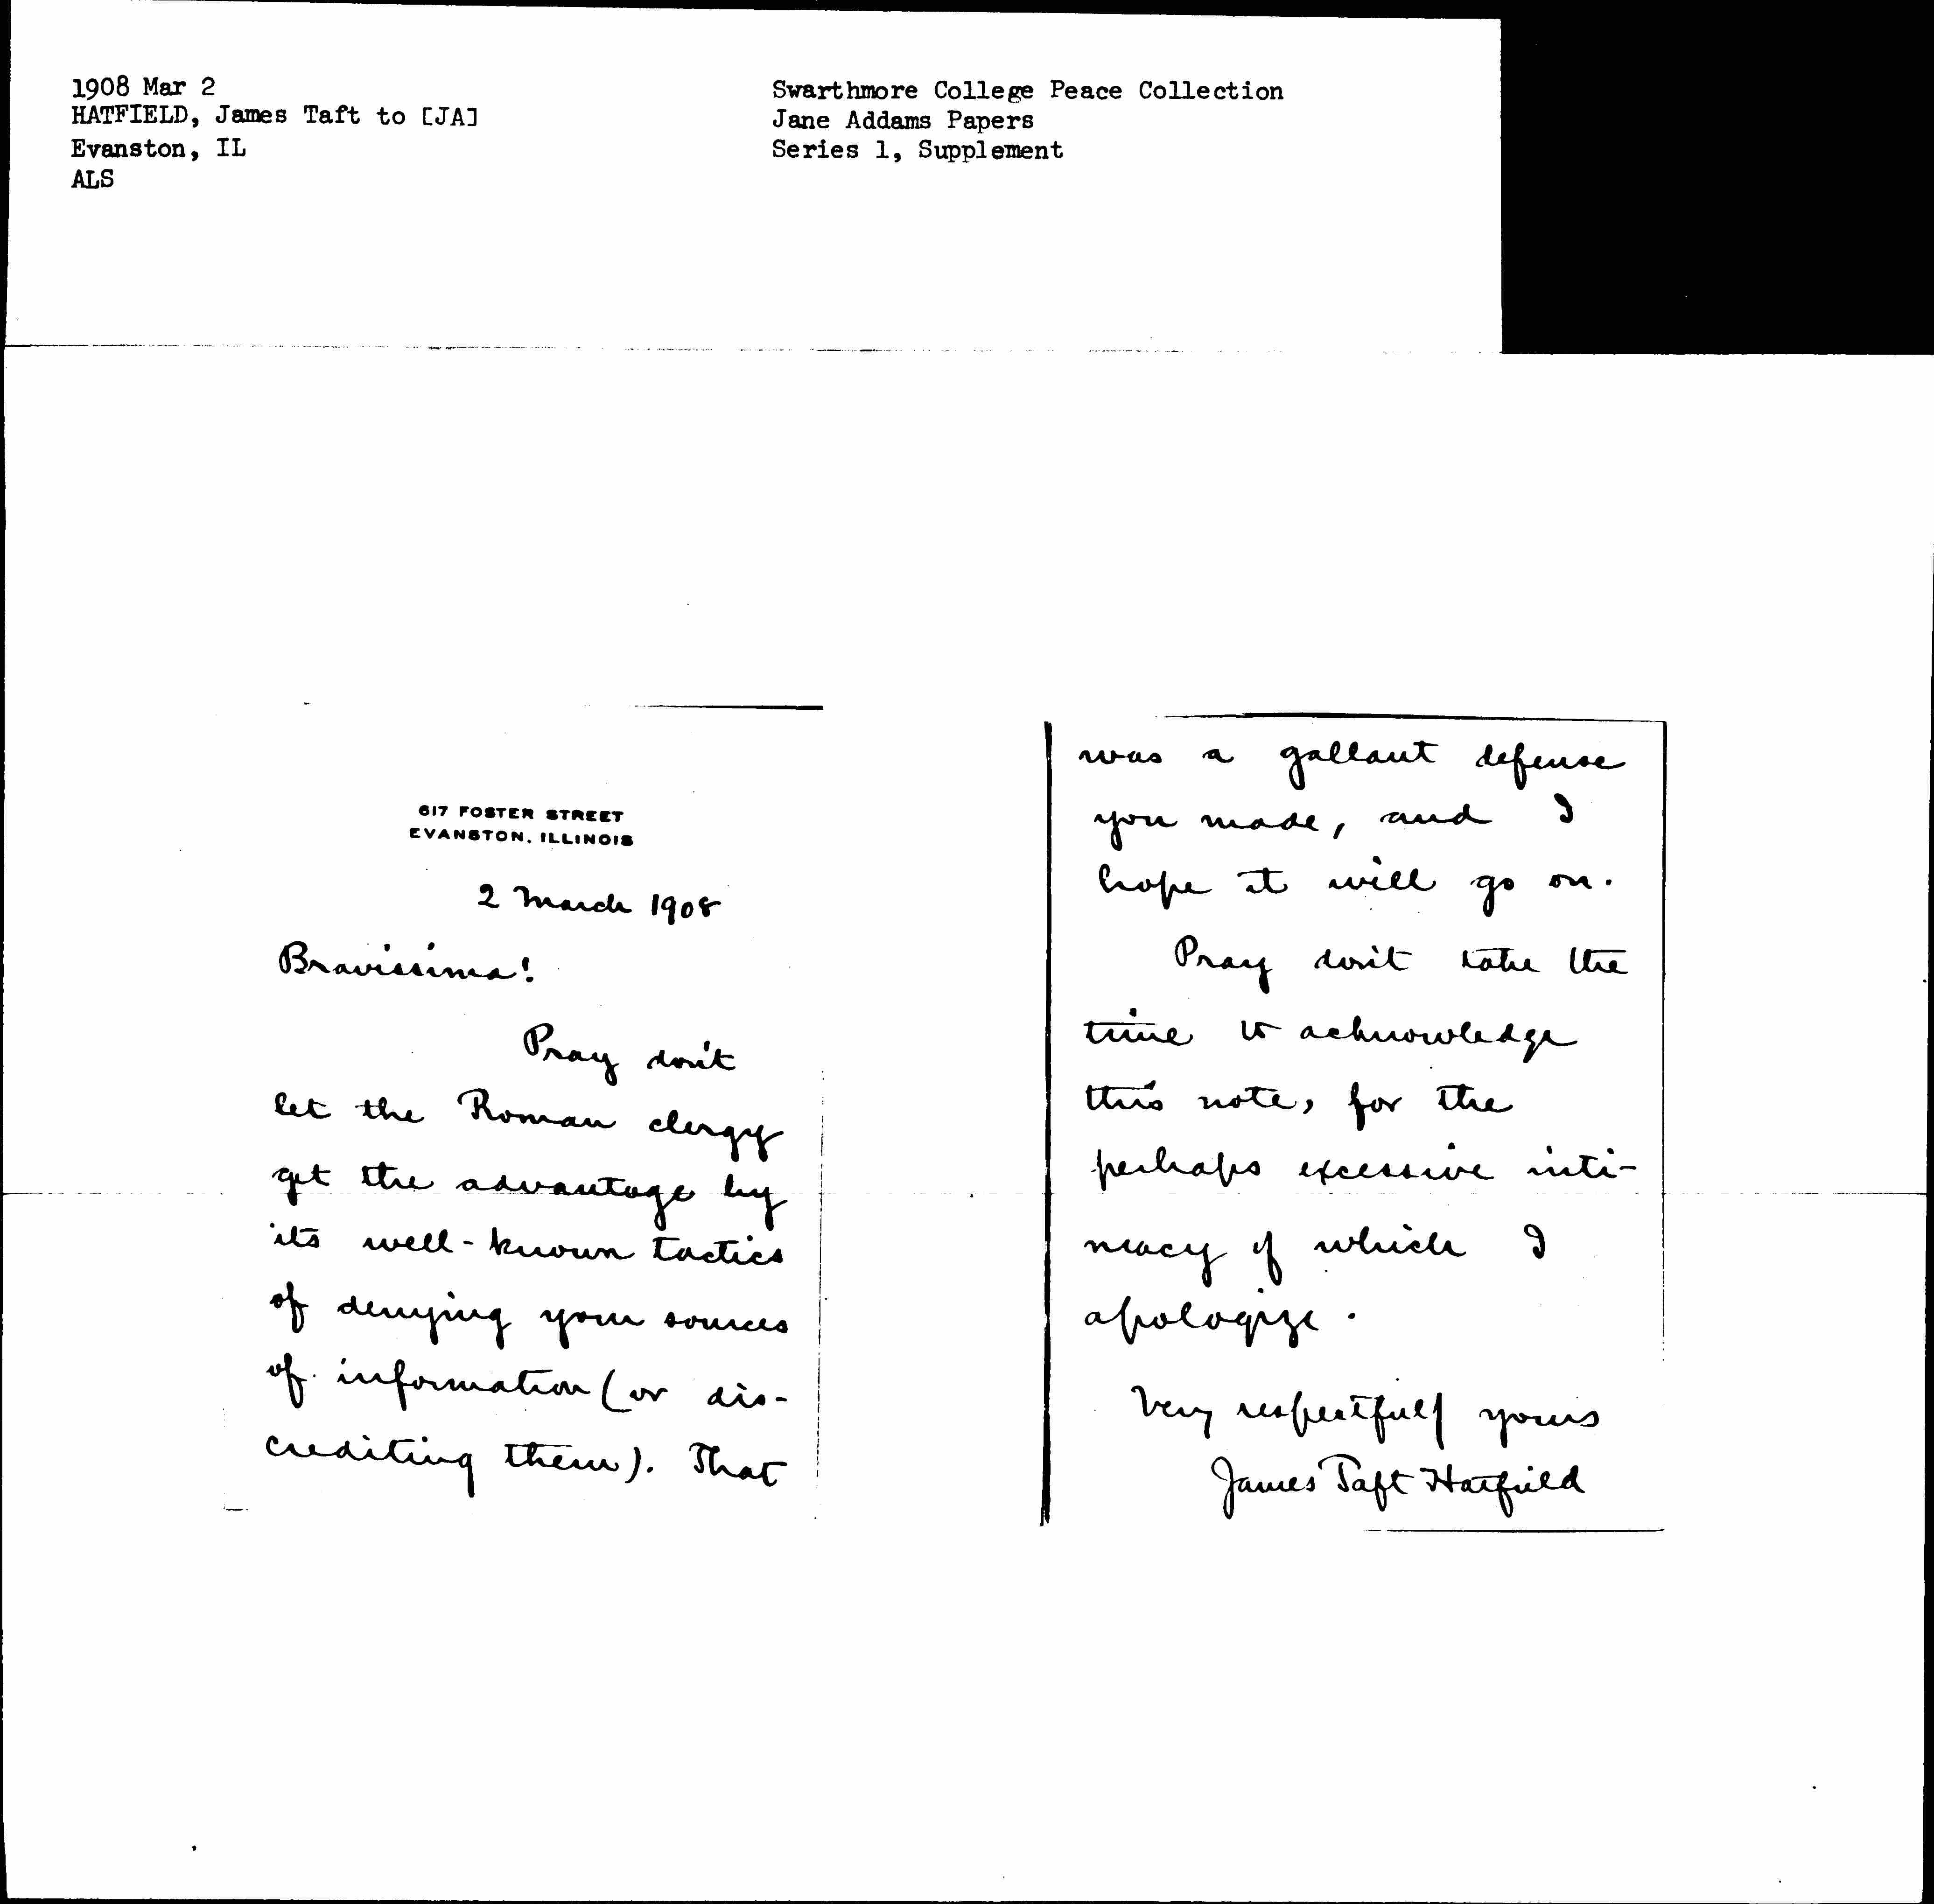 1908 Mar 2
HATFIELD, James Taft to [JA]
Evanston, IL
ALS
Swarthmore College Peace Collection
Jane Addams Papers
Series 1, Supplement
617 FOSTER STREET
EVANSTON, ILLINOIS
2 March 1908
Bravissima!
Pray don't
let the Roman clergy
get the advantage by
its well-known tactics
of denying your sources
of information (or dis-
crediting them). That
was a gallant defense
you made, and I
hope it will go on.
Pray don't take the
time to acknowledge
this note, for the
perhaps excessive inti-
macy of which I
apologize.
Very respectfully yours
James Taft Hatfield